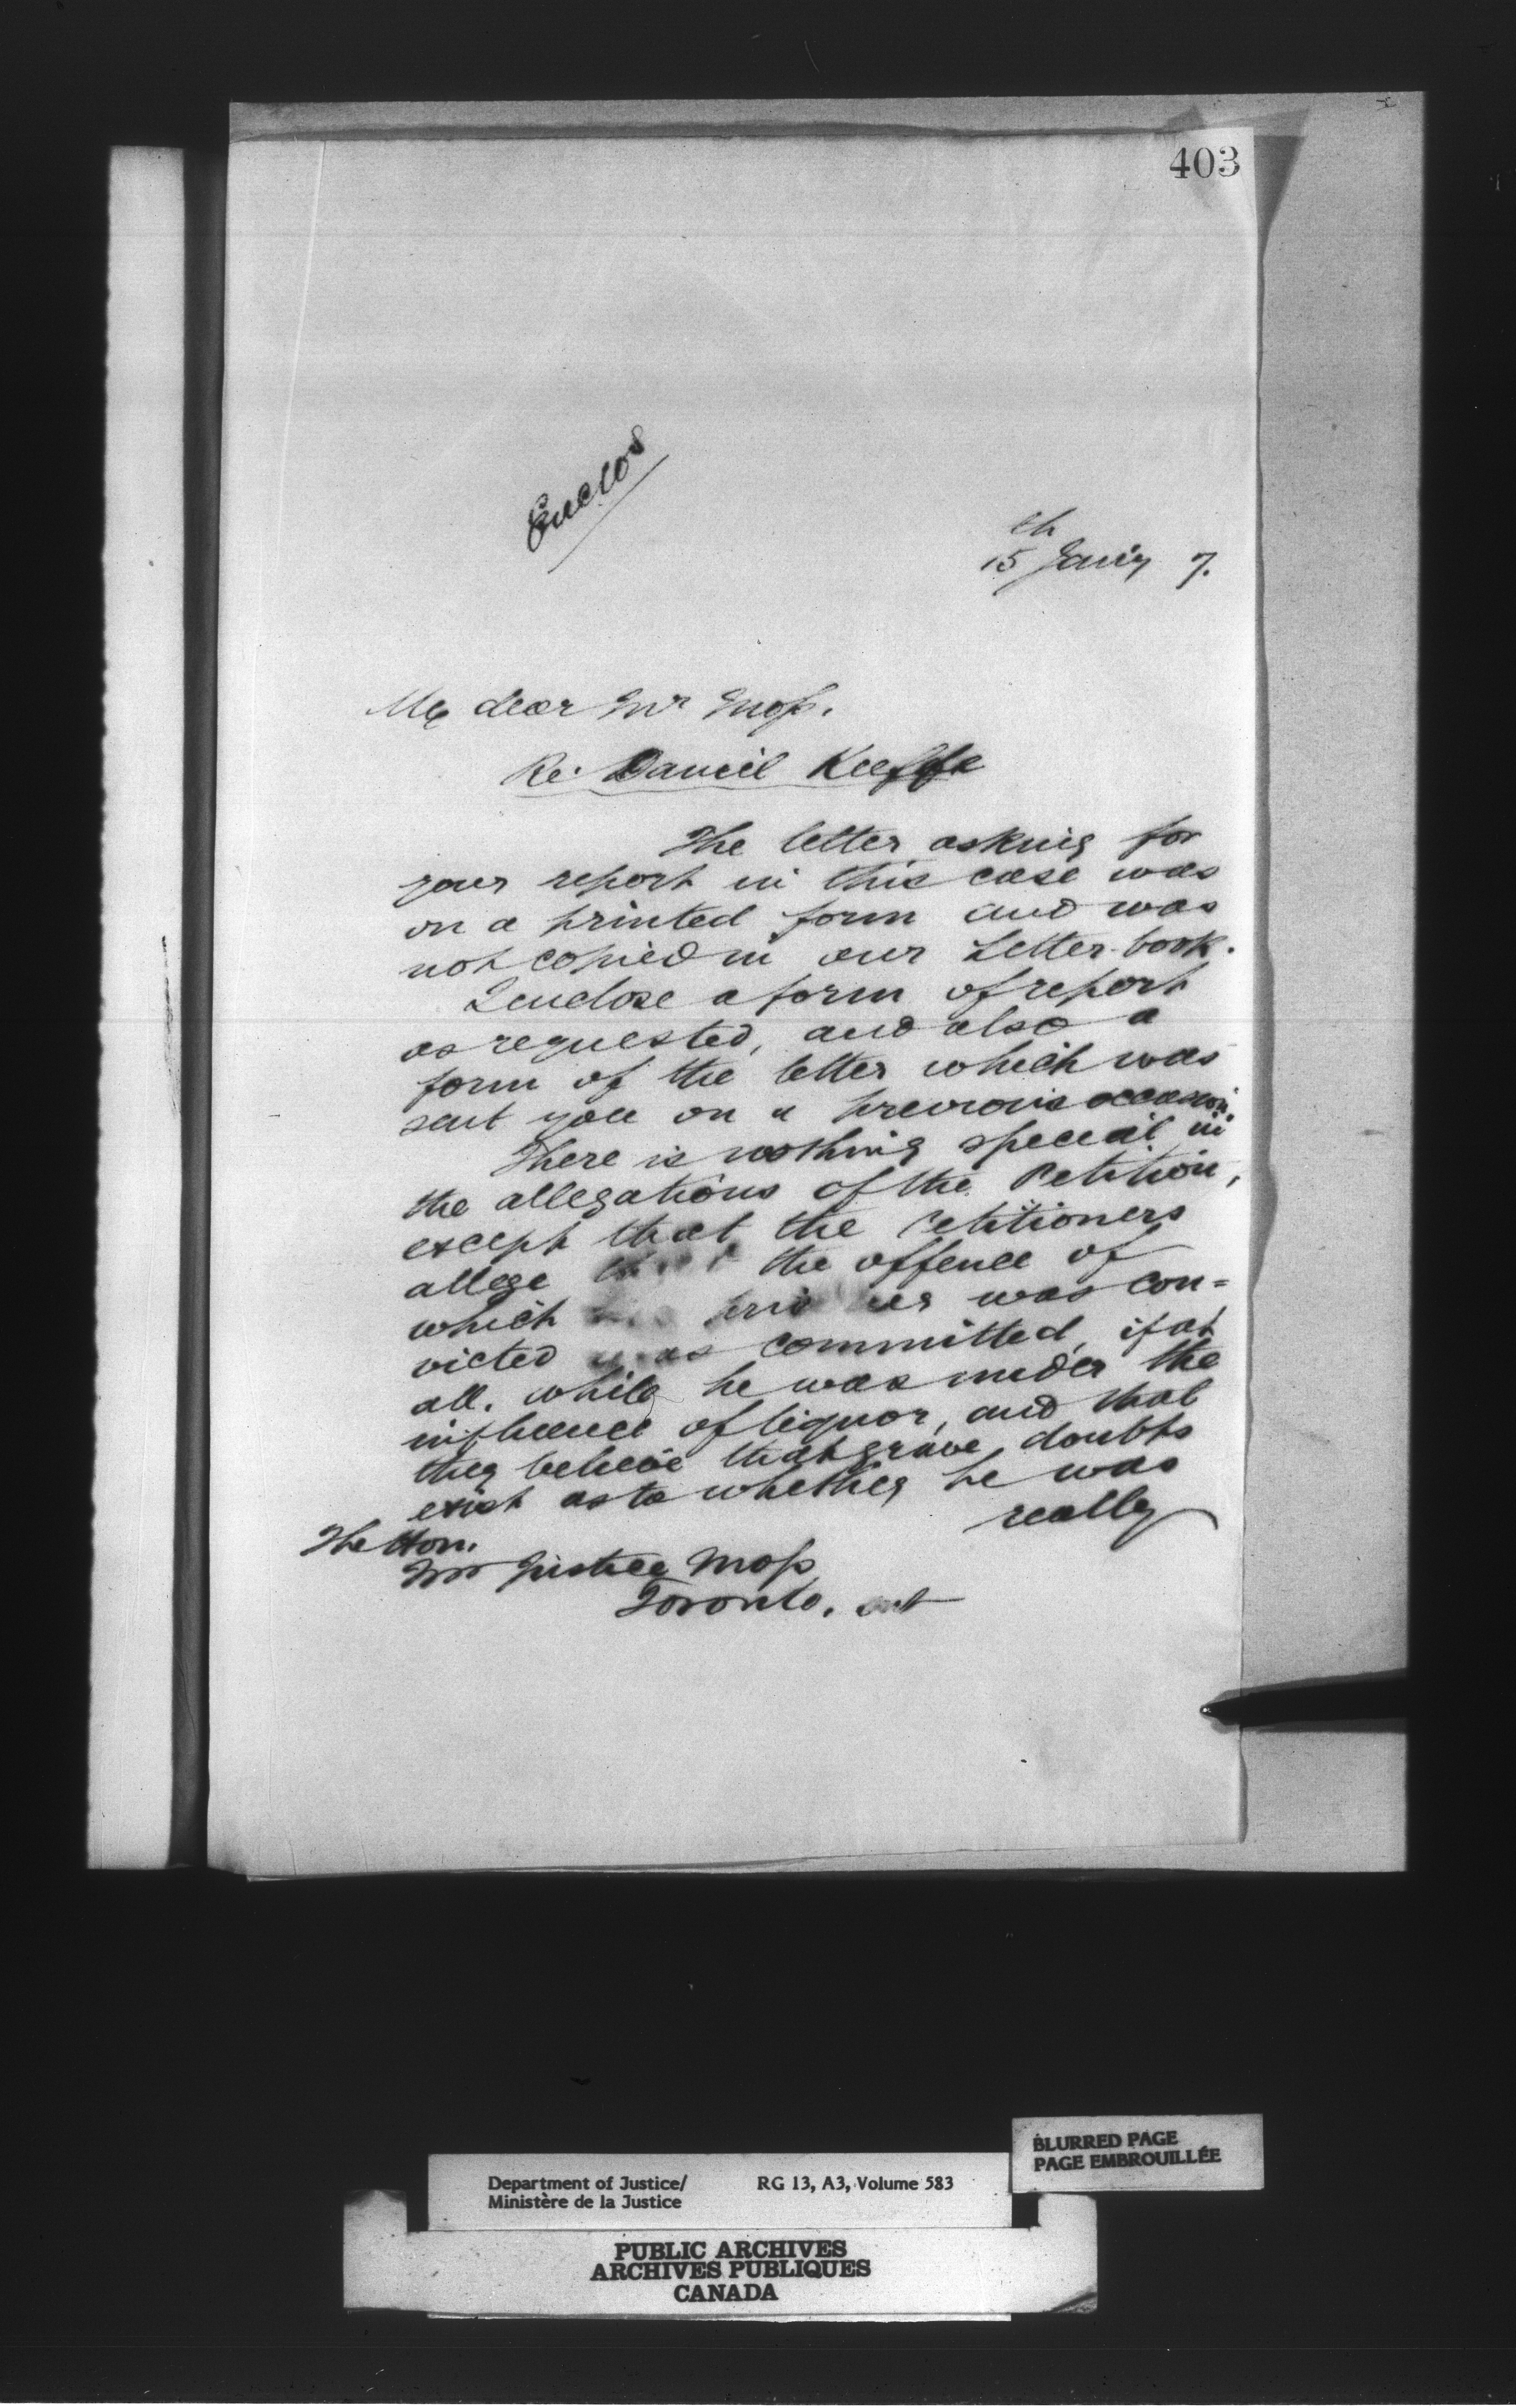 403
Enclos
15th Jan'y 7.
My dear Mr Moss.
Re. Daniel Keeffe
The letter asking for
your report in this case was
on a printed form and was
not copied in our Letter-book.
I enclose a form of report
as requested, and also a
form of the letter which was
sent you on a previous occasion.
There is nothing special in
the allegations of the Petition,
except that the Petitioners
allege that the offence of
which prisoner was con=
victed was committed, if at
all, while he was under the
influence of liquor, and that
they believe that grave doubts
exist as to whether he was
really
The Hon.
Mr Justice Moss
Toronto, Ont
BLURRED PAGE
PAGE EMBROUILLÉE
Department of Justice/ RG 13, A3, Volume 583
Ministère de la Justice
PUBLIC ARCHIVES
ARCHIVES PUBLIQUES
CANADA